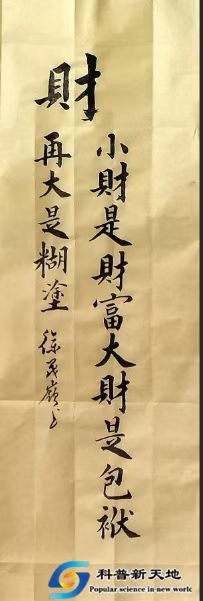 財
小財是財富大財是包袱
再大是糊塗
科普新天地
Popular science in new world